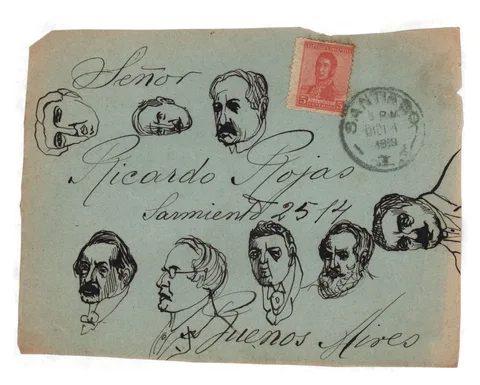 Señor
Ricardo Rojas
Sarmiento 2514
Buenos Aires
5
SANTIAGO
1919